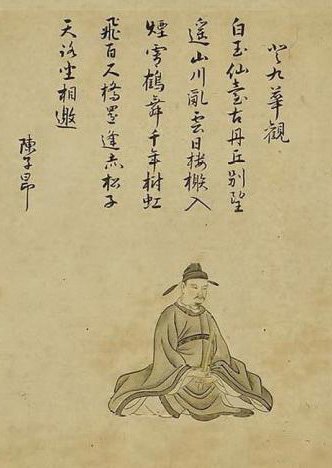 登九華觀
白玉仙臺古丹丘別望
遙山川亂雲日樓榭入
煙霄鶴舞千年樹虹
飛百尺橋還逢赤松子
天路坐相邀
陳子昂